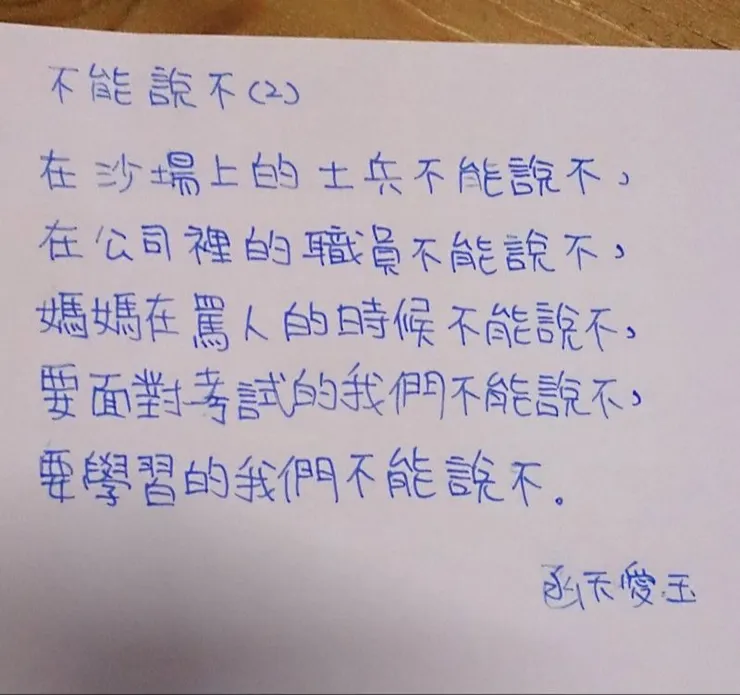 不能說不(2)
在沙場上的士兵不能說不，
在公司裡的職員不能說不，
媽媽在罵人的時候不能說不，
要面對考試的我們不能說不，
要學習的我們不能說不。
天愛玉